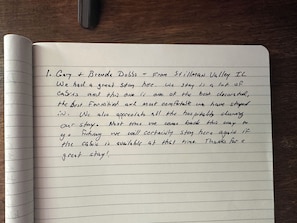 1. Gary & Brenda Dobbs - From Stillman Valley IL
We had a great stay here. We stay in a lot of
cabins and this one is one of the best decorated,
the best furnished and most comfortable we have stayed
in. We also appreciate all the hospitality during
our stay. Next time we come back this way to
go we will certainly stay here again if
the cabin is available at that time. Thanks for a
great stay!